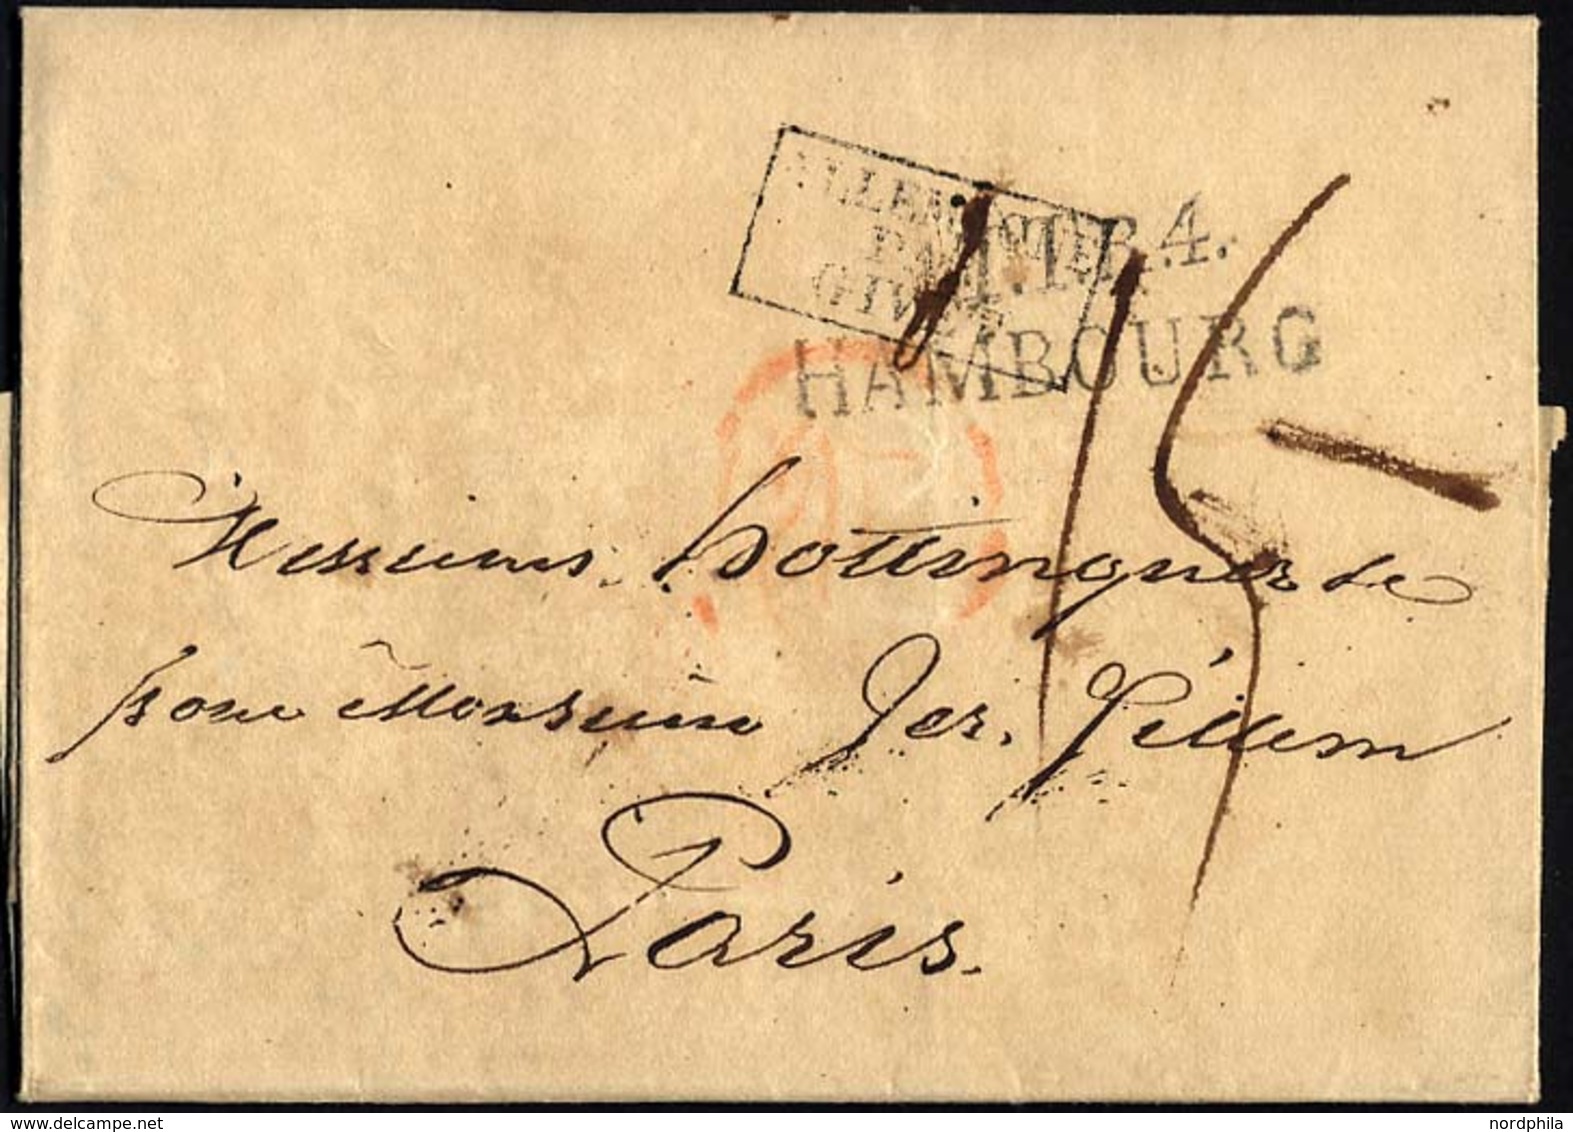 ALLEMAGNE
PAR
GIVET
T.T.R.4.
HAMBOURG
15
Messieurs Hottinguer &c
pour Monsieur Jer. Sillem
Paris.
nordphila